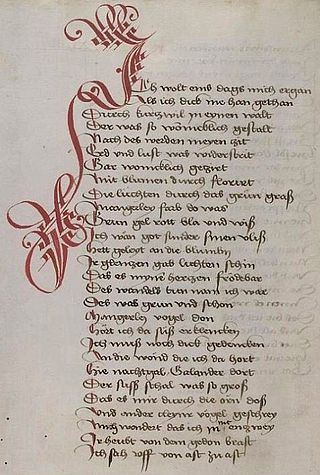 Ich wolt eins dags mich ergan
Als ich dick me han gethan
Durch kurczwil in eynen walt
Der was so wönncklich gestalt
Nach des werden meyen zit
Erd vnd lust was widerstrit
Gar wonncklich geziret
Mit blumen durch florirt
Die luchten durch das grun graß
Mangerley farb do was
Brun gel rott bla vnd wiß
Ich wan got sunder sinen vliß
Hett geleyt an die blumlin
Ir glenczen gab liechten schin
Das es myns herczen frödebar
Des wandels bun nam ich war
Des was grun vnd schon
Mangerley vogel don
Hört ich da süß erklencken
Ich muß noch dick gedencken
An die wond die ich da hort
Die nachtigal Galander dort
Der süß schal was so groß
Das es mir durch die orn doß
Vnd ander cleyne vögel geschrey
Mich wundert das ich nit enzwey
Ir heubt von dem gedon brast
Ich sah vff von ast zu ast